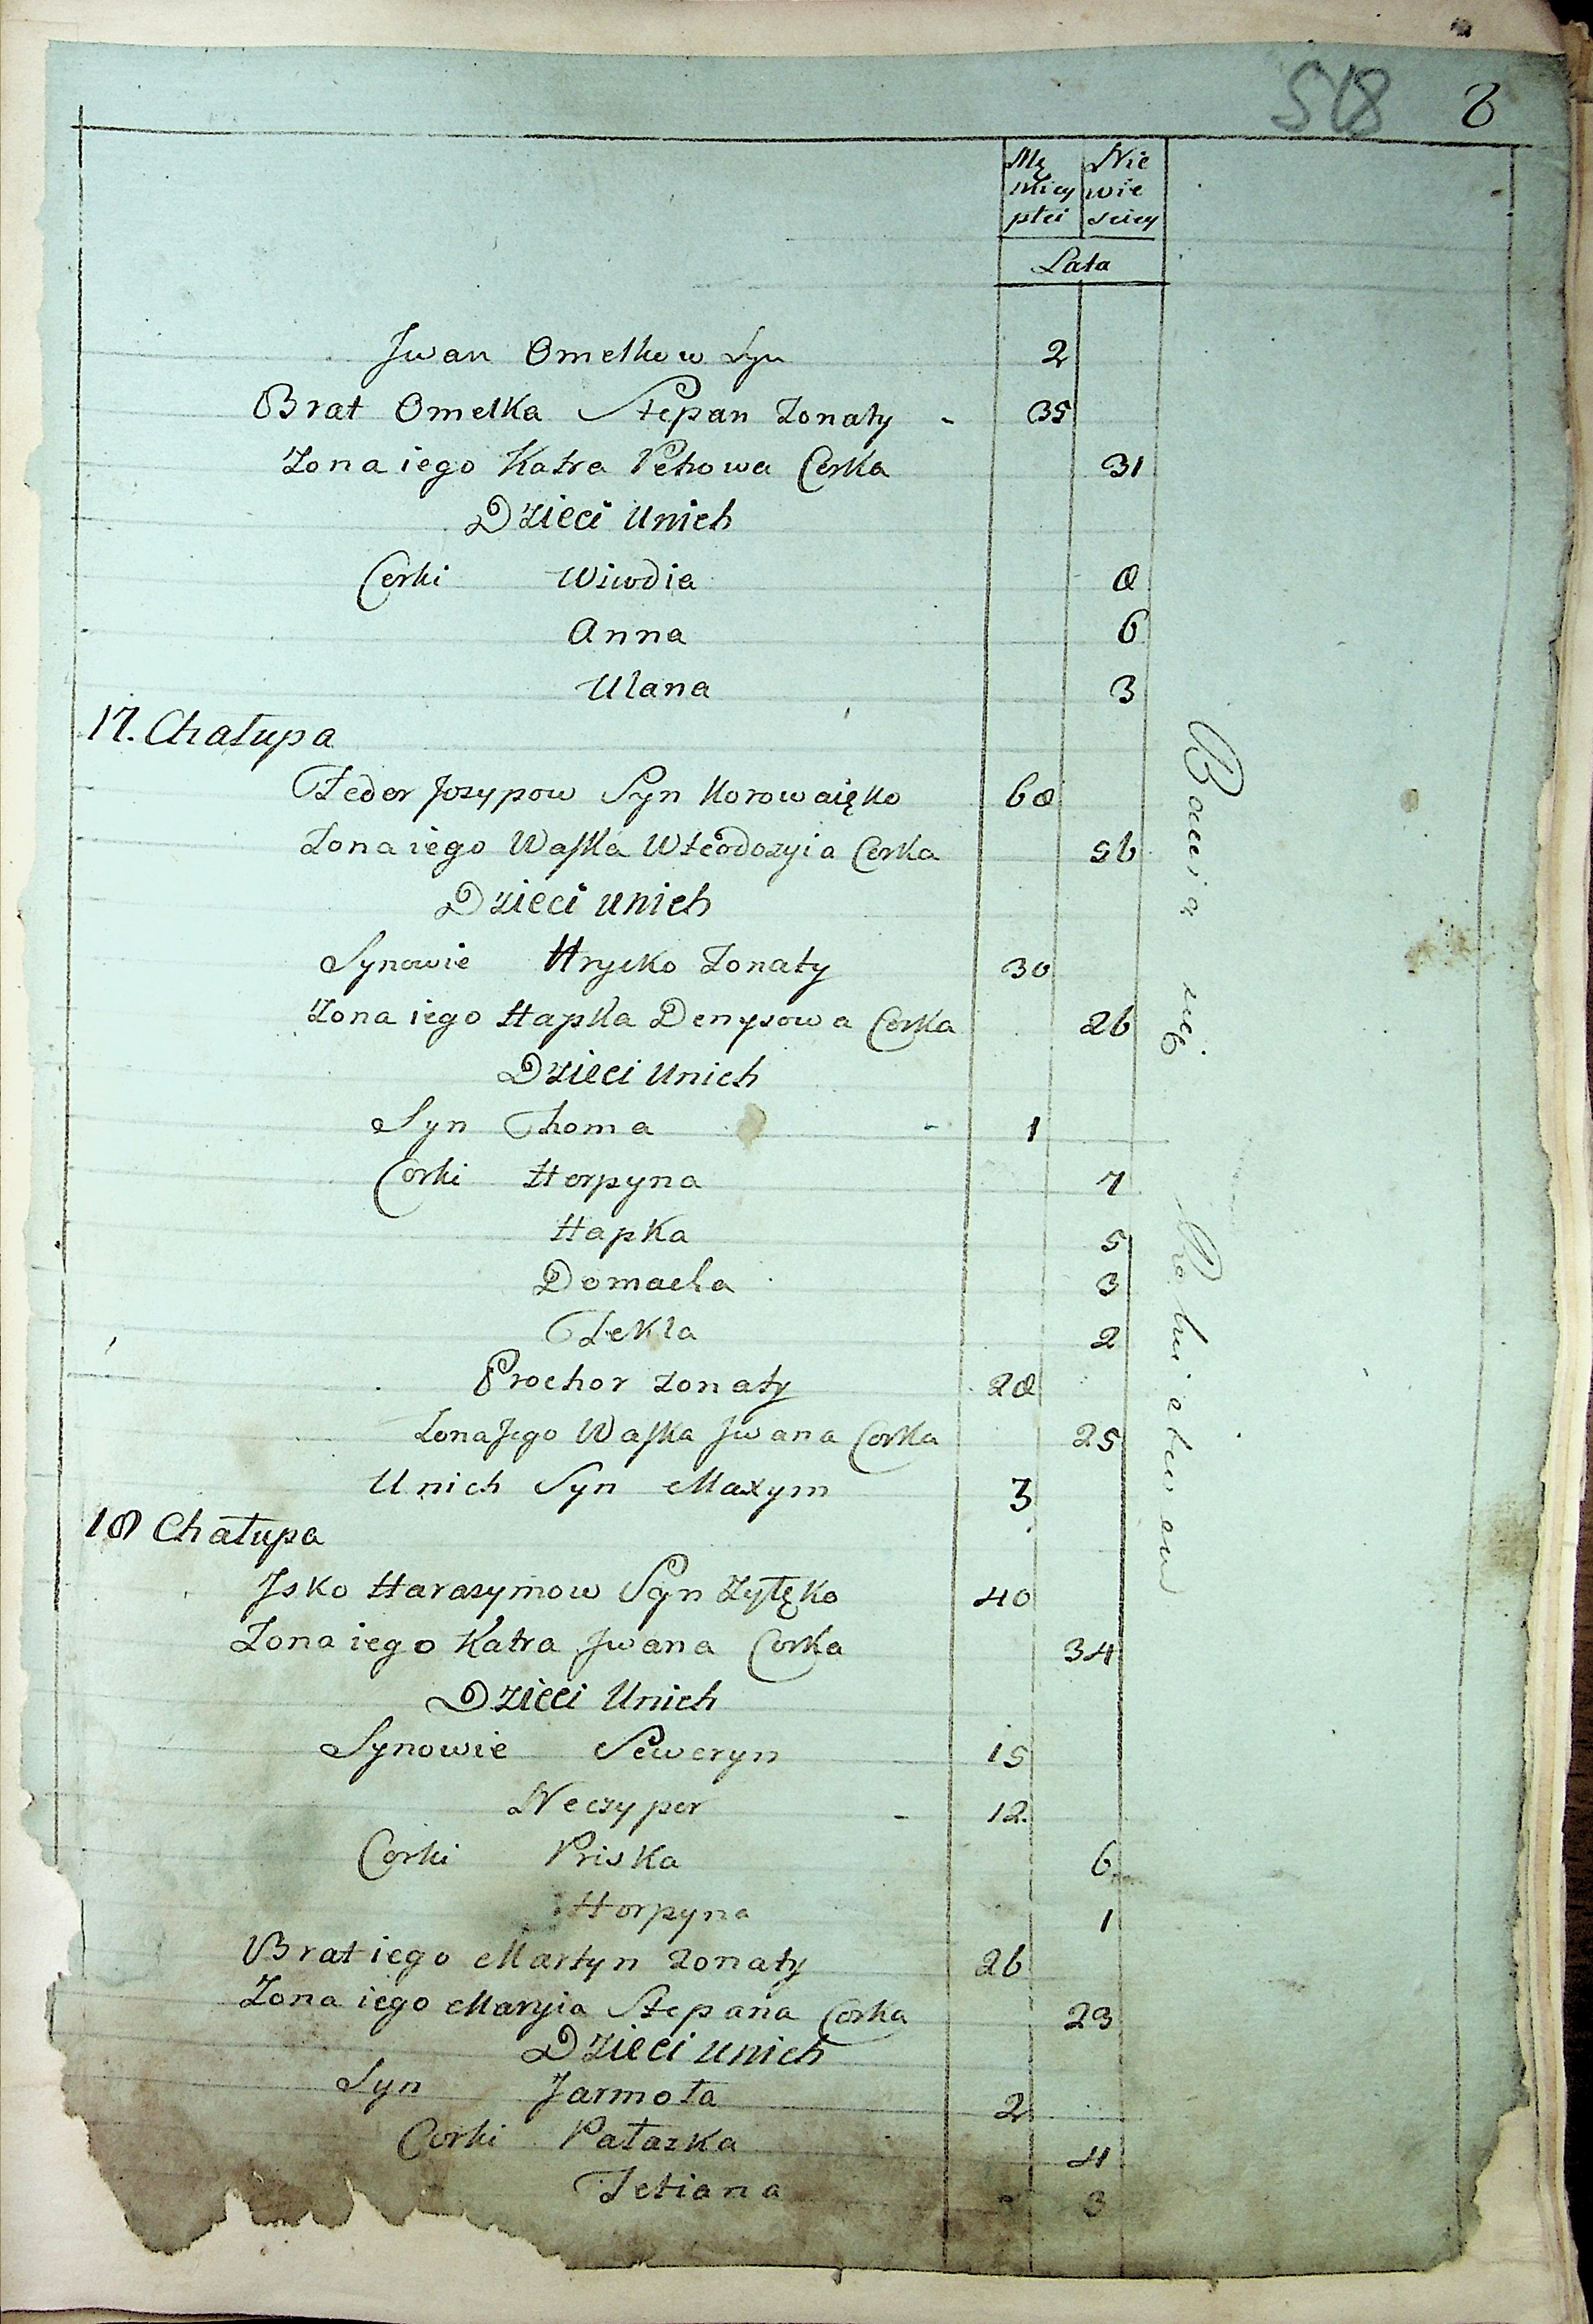 518 8
Mę Nie
skiey wie
płci sciey
Lata
Jwan Omelkow Syn 2
Brat Omelka Stepan Zonaty - 35
Zona iego Katra Petrowa Corka 31
Dzieci Unich
Corki Wiwdia 8
Anna 6
Ulana 3
17. Chałupa
Fedor Jozypow Syn Korowaięko 68
Zona iego Waſka Corka 56
Dzieci Unich
Synowie Hrycko Zonaty 30
Zona iego Hapka Denysowa Corka 26
Dzieci Unich
Syn Choma - 1
Corki Horpyna 7
Hapka 5
Domacha 3
Tekla 2
Prochor Zonaty 28
Zona Jego Waſka Jwana Corka 25
Unich Syn Maxym 3
18 Chałupa
Jsko Harasymow Syn Zytęko 40
Zona iego Katra Jwana Corka 34
Dzieci Unich
Synowie Seweryn 15
Neczypor - 12
Corki Priska 6
Horpyna 1
Brat iego Martyn Zonaty 26
Zona iego Maryia Stepana Corka 23
Dzieci Unich
Syn Jarmoła 2
Corki Pałazka 4
Tetiana 3